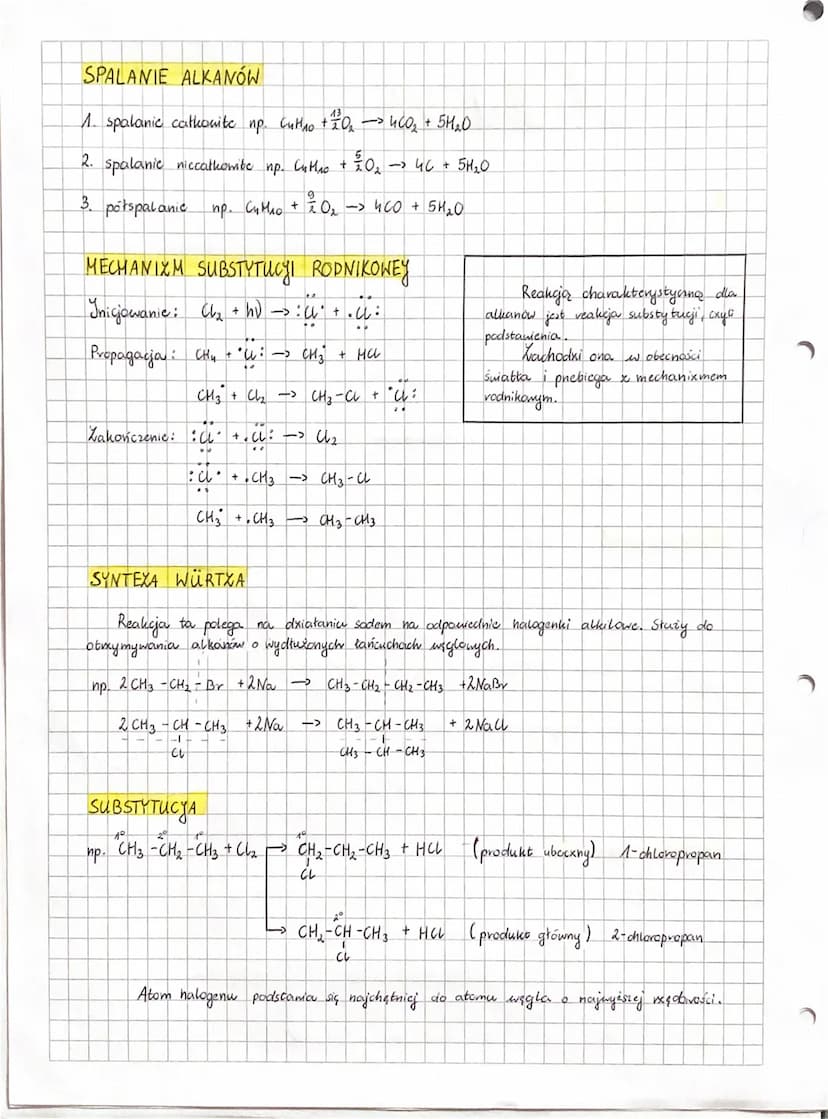 SPALANIE ALKANÓW
1. spalanie całkowite np. C₄H₁₀ + 13/2 O₂ → 4CO₂ + 5H₂O
2. spalanie niecałkowite np. C₄H₁₀ + 5/2 O₂ → 4C + 5H₂O
3. półspalanie np. C₄H₁₀ + 9/2 O₂ → 4CO + 5H₂O
MECHANIZM SUBSTYTUCJI RODNIKOWEJ
Inicjowanie: Cl₂ + hν → :Cl· + .Cl:
Propagacja: CH₄ + ·Cl: → CH₃· + HCl
CH₃· + Cl₂ → CH₃-Cl + ·Cl:
Zakończenie: :Cl· + .Cl: → Cl₂
:Cl· + .CH₃ → CH₃-Cl
CH₃· + .CH₃ → CH₃-CH₃
Reakcją charakterystyczną dla
alkanów jest reakcja substytucji, czyli
podstawienia.
Zachodzi ona w obecności
światła i przebiega z mechanizmem
rodnikowym.
SYNTEZA WÜRTZA
Reakcja ta polega na działaniu sodem na odpowiednie halogenki alkilowe. Służy do
otrzymywania alkanów o wydłużonych łańcuchach węglowych.
np. 2CH₃-CH₂-Br + 2Na → CH₃-CH₂-CH₂-CH₃ + 2NaBr
2CH₃-CH-CH₃ + 2Na → CH₃-CH-CH₃ + 2NaCl
Cl CH₃-CH-CH₃
SUBSTYTUCJA
1° 2° 1° 1°
np. CH₃-CH₂-CH₃ + Cl₂ → CH₂-CH₂-CH₃ + HCl (produkt uboczny) 1-chloropropan
Cl
2°
→ CH₂-CH-CH₃ + HCl (produkt główny) 2-chloropropan
Cl
Atom halogenu podstawia się najchętniej do atomu węgla o najwyższej rzędowości.